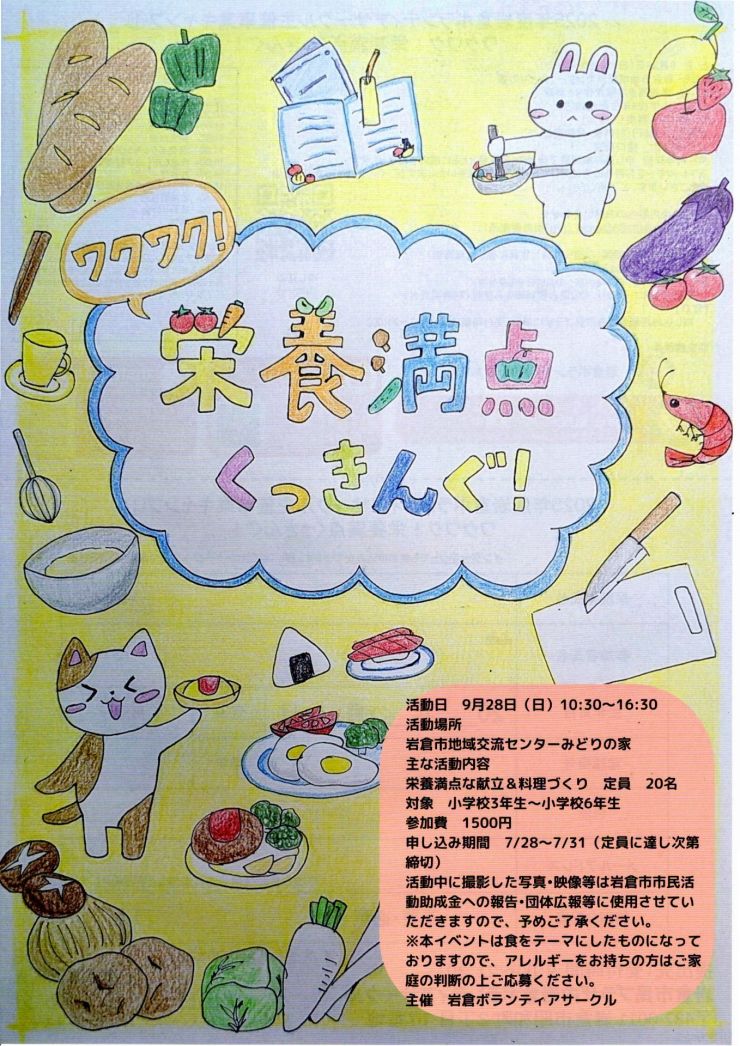 ワクワク!
栄養満点
くっきんぐ!
活動日 9月28日（日）10:30〜16:30
活動場所
岩倉市地域交流センターみどりの家
主な活動内容
栄養満点な献立＆料理づくり 定員 20名
対象 小学校3年生〜小学校6年生
参加費 1500円
申し込み期間 7/28〜7/31（定員に達し次第
締切）
活動中に撮影した写真・映像等は岩倉市市民活
動助成金への報告・団体広報等に使用させてい
ただきますので、予めご了承ください。
※本イベントは食をテーマにしたものになって
おりますので、アレルギーをお持ちの方はご家
庭の判断の上ご応募ください。
主催 岩倉ボランティアサークル